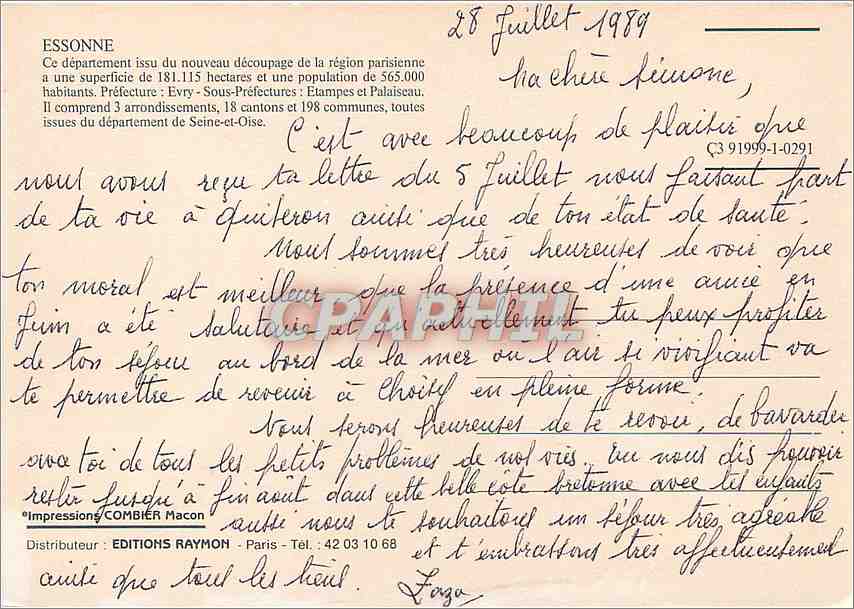 28 Juillet 1989
ESSONNE
Ce département issu du nouveau découpage de la région parisienne
a une superficie de 181.115 hectares et une population de 565.000
habitants. Préfecture : Evry - Sous-Préfectures : Etampes et Palaiseau.
Il comprend 3 arrondissements, 18 cantons et 198 communes, toutes
issues du département de Seine-et-Oise.
Ma chère Simone,
C'est avec beaucoup de plaisir que
Ç3 91999-1-0291
nous avons reçu ta lettre du 5 Juillet nous faisant part
de ta vie à Quiberon ainsi que de ton état de santé.
Nous sommes très heureuses de voir que
ton moral est meilleur que la présence d'une amie en
Juin a été salutaire et qu'actuellement tu peux profiter
CPAPHIL
de ton séjour au bord de la mer où l'air si vivifiant va
te permettre de revenir à Choisy en pleine forme.
Nous serons heureuses de te revoir, de bavarder
avec toi de tous les petits problèmes de nos vies. Tu nous dis pouvoir
rester jusqu'à fin août dans cette belle côte bretonne avec tes enfants
*Impressions COMBIER Macon
aussi nous te souhaitons un séjour très agréable
Distributeur : EDITIONS RAYMON - Paris - Tél. : 42 03 10 68
et t'embrassons très affectueusement
ainsi que tous les tiens. Zaza